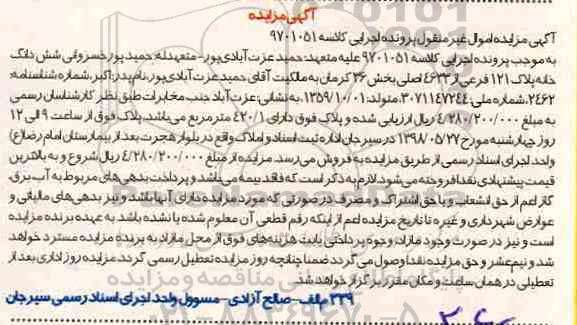 آگهی مزایده
آگهی مزایده اموال غیر منقول پرونده اجرایی کلاسه ۹۷۰۱۰۵۱
به موجب پرونده اجرایی کلاسه ۹۷۰۱۰۵۱ علیه متعهد: حمید عزت آبادی‌پور - متعهدله: حمید پور خسروانی شش دانگ
خانه پلاک ۱۲۱ فرعی از ۴۶۳۳ اصلی بخش ۳۶ کرمان به مالکیت آقای حمید عزت آبادی‌پور، نام پدر: اکبر، شماره شناسنامه:
۲۴۶۲، شماره ملی: ۳۰۷۱۱۴۷۲۴۴، متولد: ۱۳۵۹/۱۰/۰۱، به نشانی: عزت آباد جنب مخابرات طبق نظر کارشناسان رسمی
به مبلغ ۴/۲۸۰/۲۰۰/۰۰۰ ریال ارزیابی شده و پلاک فوق دارای ۴۲۰/۱ متر مربع می‌باشد. پلاک فوق از ساعت ۹ الی ۱۲
روز چهارشنبه مورخ ۱۳۹۸/۰۵/۲۷ در سیرجان اداره ثبت اسناد و املاک واقع در بلوار هجرت بعد از بیمارستان امام رضا(ع)
واحد اجرای اسناد رسمی از طریق مزایده به فروش می‌رسد. مزایده از مبلغ ۴/۲۸۰/۲۰۰/۰۰۰ ریال شروع و به بالاترین
قیمت پیشنهادی نقدا فروخته می‌شود. لازم به ذکر است که فاقد بیمه می‌باشد و پرداخت بدهی‌های مربوط به آب، برق
گاز اعم از حق انشعاب و یا حق اشتراک و مصرف در صورتی که مورد مزایده دارای آنها باشد و نیز بدهی‌های مالیاتی و
عوارض شهرداری و غیره تا تاریخ مزایده اعم از اینکه رقم قطعی آن معلوم شده یا نشده باشد به عهده برنده مزایده
است و نیز در صورت وجود مازاد، وجوه پرداختی بابت هزینه‌های فوق از محل مازاد به برنده مزایده مسترد خواهد
شد و نیم‌عشر و حق مزایده نقدا وصول می‌گردد ضمنا چنانچه روز مزایده تعطیل رسمی گردد مزایده روز اداری بعد از
تعطیلی در همان ساعت و مکان مقرر برگزار خواهد شد.
۲۳۹ م/الف - صالح آزادی - مسوول واحد اجرای اسناد رسمی سیرجان